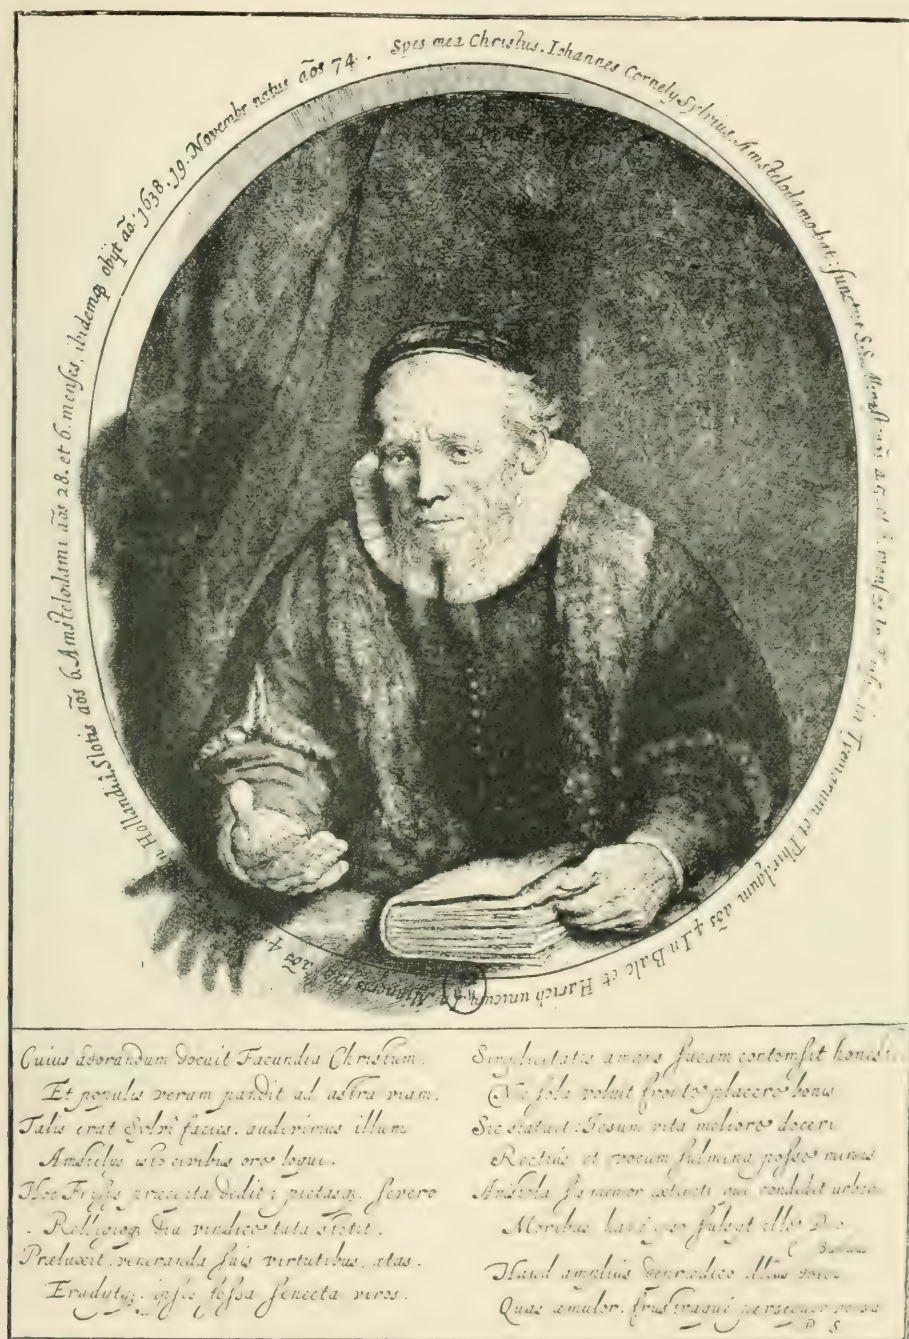 Spes mea Christus. Iohannes Cornely Sylvius. Amstelodamobat: functus S.S. Minist. aõs 45. et 6 menses In Frisia in Tyemarum et Phirdgum aõs 4. In Balc et Harich unicum. In Minnerts aõs 4. In Hollandia Slotis aõs 6. Amstelodami aõs 28. et 6. menses, ibidemq obijt aõ: 1638. 19. Novembr natus aõs 74.
Cuius adorandum docuit Facundia Christum.
Et populis veram pandit ad astra viam.
Talis erat Sylvî facies. audivimus illum
Amstelys isto civibus ore loqui.
Hoc Frisijs præcepta dedit; pietasq. severo
Relligioq. diu vindice tuta stetit.
Præluxit, veneranda suis virtutibus, ætas.
Erudytq. ipsos fessa senecta viros.
Simplicitatis amans fucum contemsit honesti
Nec sola voluit fronte placere bonis
Sic statuit: Iesum vita meliore doceri
Rectius et vocum fulmina posse minus
Amstola sis memor extincti qui condidit urbem
Moribus hanc ipso fulsyt illo Deo
C
Haud amplius deprædico illius
Quas æmulor, frustraque persequor
P S